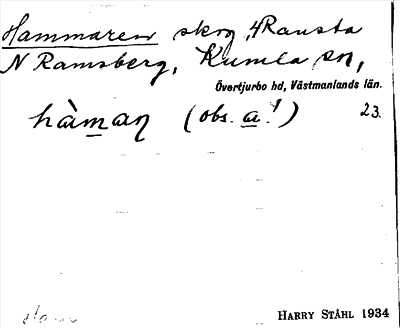 Hammaren skog, 4 Ransta
N Ramsberg, Kumla sn,
Övertjurbo hd, Västmanlands län.
hàman (obs. a!) 23.
HARRY STÅHL 1934